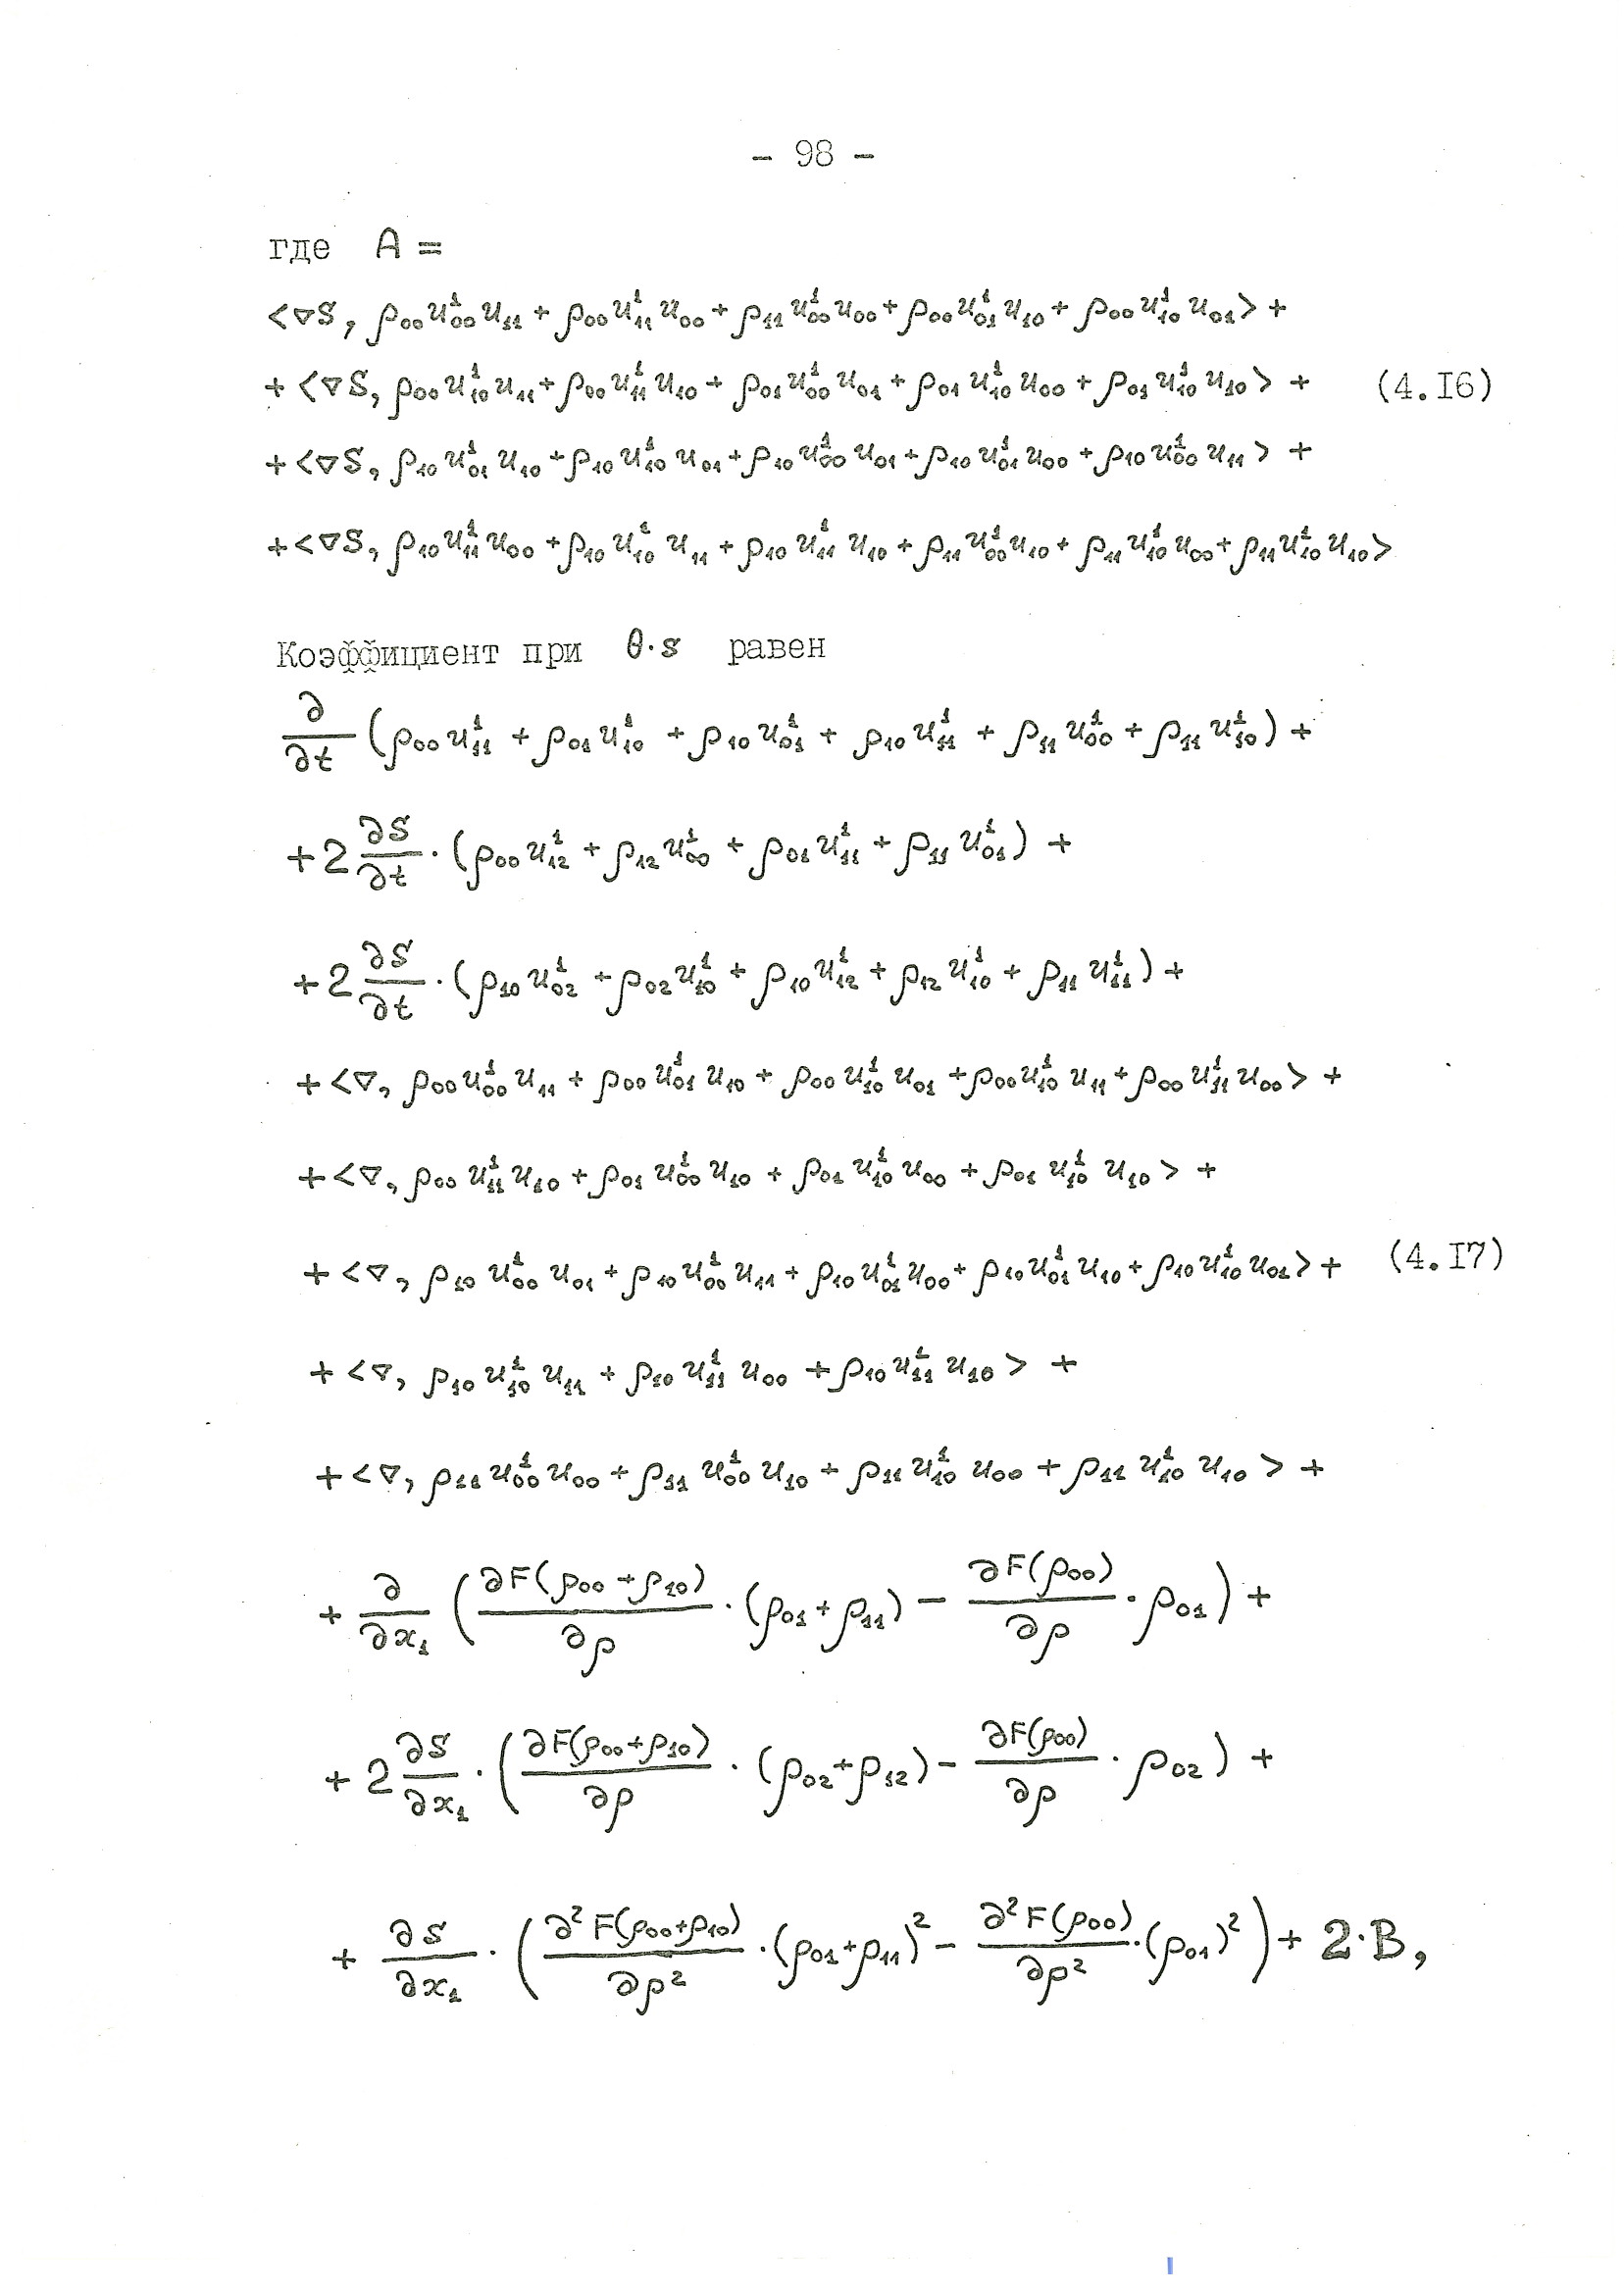 - 98 -
где A =
<∇S, ρ₀₀u¹₀₀u₁₁ + ρ₀₀u¹₁₁u₀₀ + ρ₁₁u¹₀₀u₀₀ + ρ₀₀u¹₀₁u₁₀ + ρ₀₀u¹₁₀u₀₁> +
+ <∇S, ρ₀₀u¹₁₀u₁₁ + ρ₀₀u¹₁₁u₁₀ + ρ₀₁u¹₀₀u₀₁ + ρ₀₁u¹₁₀u₀₀ + ρ₀₁u¹₁₀u₁₀> + (4.I6)
+ <∇S, ρ₁₀u¹₀₁u₁₀ + ρ₁₀u¹₁₀u₀₁ + ρ₁₀u¹₀₀u₀₁ + ρ₁₀u¹₀₁u₀₀ + ρ₁₀u¹₀₀u₁₁> +
+ <∇S, ρ₁₀u¹₁₁u₀₀ + ρ₁₀u¹₁₀u₁₁ + ρ₁₀u¹₁₁u₁₀ + ρ₁₁u¹₀₀u₁₀ + ρ₁₁u¹₁₀u₀₀ + ρ₁₁u¹₁₀u₁₀>
Коэффициент при θ·s равен
∂/∂t (ρ₀₀u¹₁₁ + ρ₀₁u¹₁₀ + ρ₁₀u¹₀₁ + ρ₁₀u¹₁₁ + ρ₁₁u¹₀₀ + ρ₁₁u¹₁₀) +
+ 2 ∂S/∂t · (ρ₀₀u¹₁₂ + ρ₁₂u¹₀₀ + ρ₀₁u¹₁₁ + ρ₁₁u¹₀₁) +
+ 2 ∂S/∂t · (ρ₁₀u¹₀₂ + ρ₀₂u¹₁₀ + ρ₁₀u¹₁₂ + ρ₁₂u¹₁₀ + ρ₁₁u¹₁₁) +
+ <∇, ρ₀₀u¹₀₀u₁₁ + ρ₀₀u¹₀₁u₁₀ + ρ₀₀u¹₁₀u₀₁ + ρ₀₀u¹₁₀u₁₁ + ρ₀₀u¹₁₁u₀₀> +
+ <∇, ρ₀₀u¹₁₁u₁₀ + ρ₀₁u¹₀₀u₁₀ + ρ₀₁u¹₁₀u₀₀ + ρ₀₁u¹₁₀u₁₀> +
+ <∇, ρ₁₀u¹₀₀u₀₁ + ρ₁₀u¹₀₀u₁₁ + ρ₁₀u¹₀₁u₀₀ + ρ₁₀u¹₀₁u₁₀ + ρ₁₀u¹₁₀u₀₁> + (4.I7)
+ <∇, ρ₁₀u¹₁₀u₁₁ + ρ₁₀u¹₁₁u₀₀ + ρ₁₀u¹₁₁u₁₀> +
+ <∇, ρ₁₁u¹₀₀u₀₀ + ρ₁₁u¹₀₀u₁₀ + ρ₁₁u¹₁₀u₀₀ + ρ₁₁u¹₁₀u₁₀> +
+ ∂/∂x₁ (∂F(ρ₀₀ + ρ₁₀)/∂ρ · (ρ₀₁ + ρ₁₁) − ∂F(ρ₀₀)/∂ρ · ρ₀₁) +
+ 2 ∂S/∂x₁ · (∂F(ρ₀₀+ρ₁₀)/∂ρ · (ρ₀₂+ρ₁₂) − ∂F(ρ₀₀)/∂ρ · ρ₀₂) +
+ ∂S/∂x₁ · (∂²F(ρ₀₀+ρ₁₀)/∂ρ² · (ρ₀₁+ρ₁₁)² − ∂²F(ρ₀₀)/∂ρ² · (ρ₀₁)²) + 2·B,